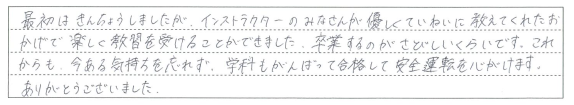 最初はきんちょうしましたが、インストラクターのみなさんが優しくていねいに教えてくれたお
かげで楽しく教習を受けることができました。卒業するのがさびしいくらいです。これ
からも、今ある気持ちを忘れず、学科もがんばって合格して安全運転を心がけます。
ありがとうございました。